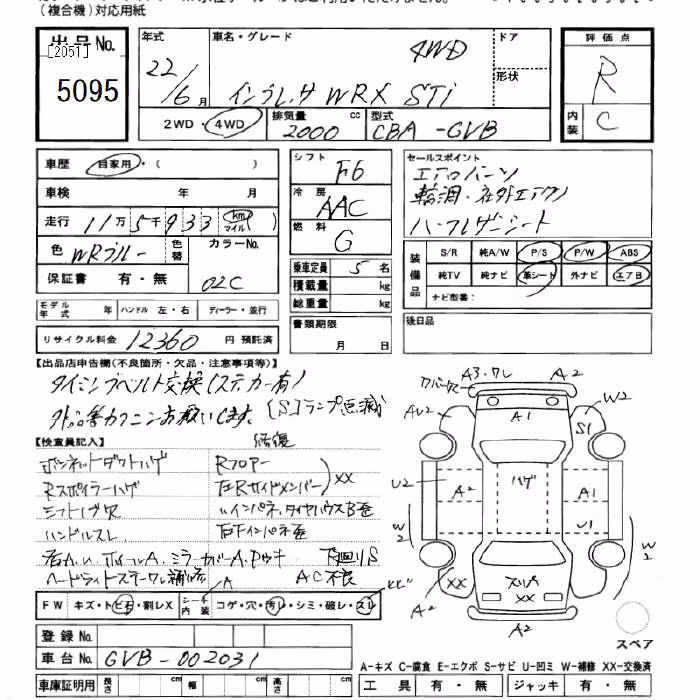 (複合機)対応用紙
出品No.
[2051]
5095
年式 22/6月
車名・グレード インプレッサ WRX STi 4WD
ドア
形状
評価点 R
内装 C
2WD・4WD
排気量 2000 cc
型式 CBA-GVB
車歴 自家用・( )
車検 年 月
走行 11万5千933 (km マイル)
色 WRブルー 色替
カラーNo. 02C
保証書 有・無
シフト F6
冷房 AAC
燃料 G
乗車定員 5名
積載量 kg
総重量 kg
セールスポイント
エアロパーツ
輪調・社外エアクリ
ハーフレザーシート
装備品
S/R 純A/W P/S P/W ABS
純TV 純ナビ 革シート 外ナビ エアB
ナビ型番:
モデル年式 年 ハンドル 左・右 ディーラー・並行
リサイクル料金 12360 円 預託済
書類期限 月 日
後日品
【出品店申告欄(不良箇所・欠品・注意事項等)】
タイミングベルト交換(ステッカー有)
外品等カクニンお願いします。[S]ランプ点滅
【検査員記入】 修復
ボンネットダクトハゲ Rフロアー
Rスポイラーハゲ 左Rサイドメンバー XX
シフトブ欠 〃インパネ、タイヤハウスB歪
ハンドルスレ 右Fインパネ歪
ホイールA、ミラーカバーA、 下廻りS
ヘッドライト 補修 AC不良
A
FW キズ・トビ石・割レX シート内装 コゲ・穴・汚レ・シミ・破レ・スレ
A3.ワレ A2
A1 W2
S1
U2 A2 ハゲ A1
W2 U1 W2
XX XX
A2 XX A2
A2
スペア
登録No.
車台No. GVB-002031
A-キズ C-腐食 E-エクボ S-サビ U-凹ミ W-補修 XX-交換済
車庫証明用 長さ cm 幅 cm 高さ cm
工具 有・無 ジャッキ 有・無